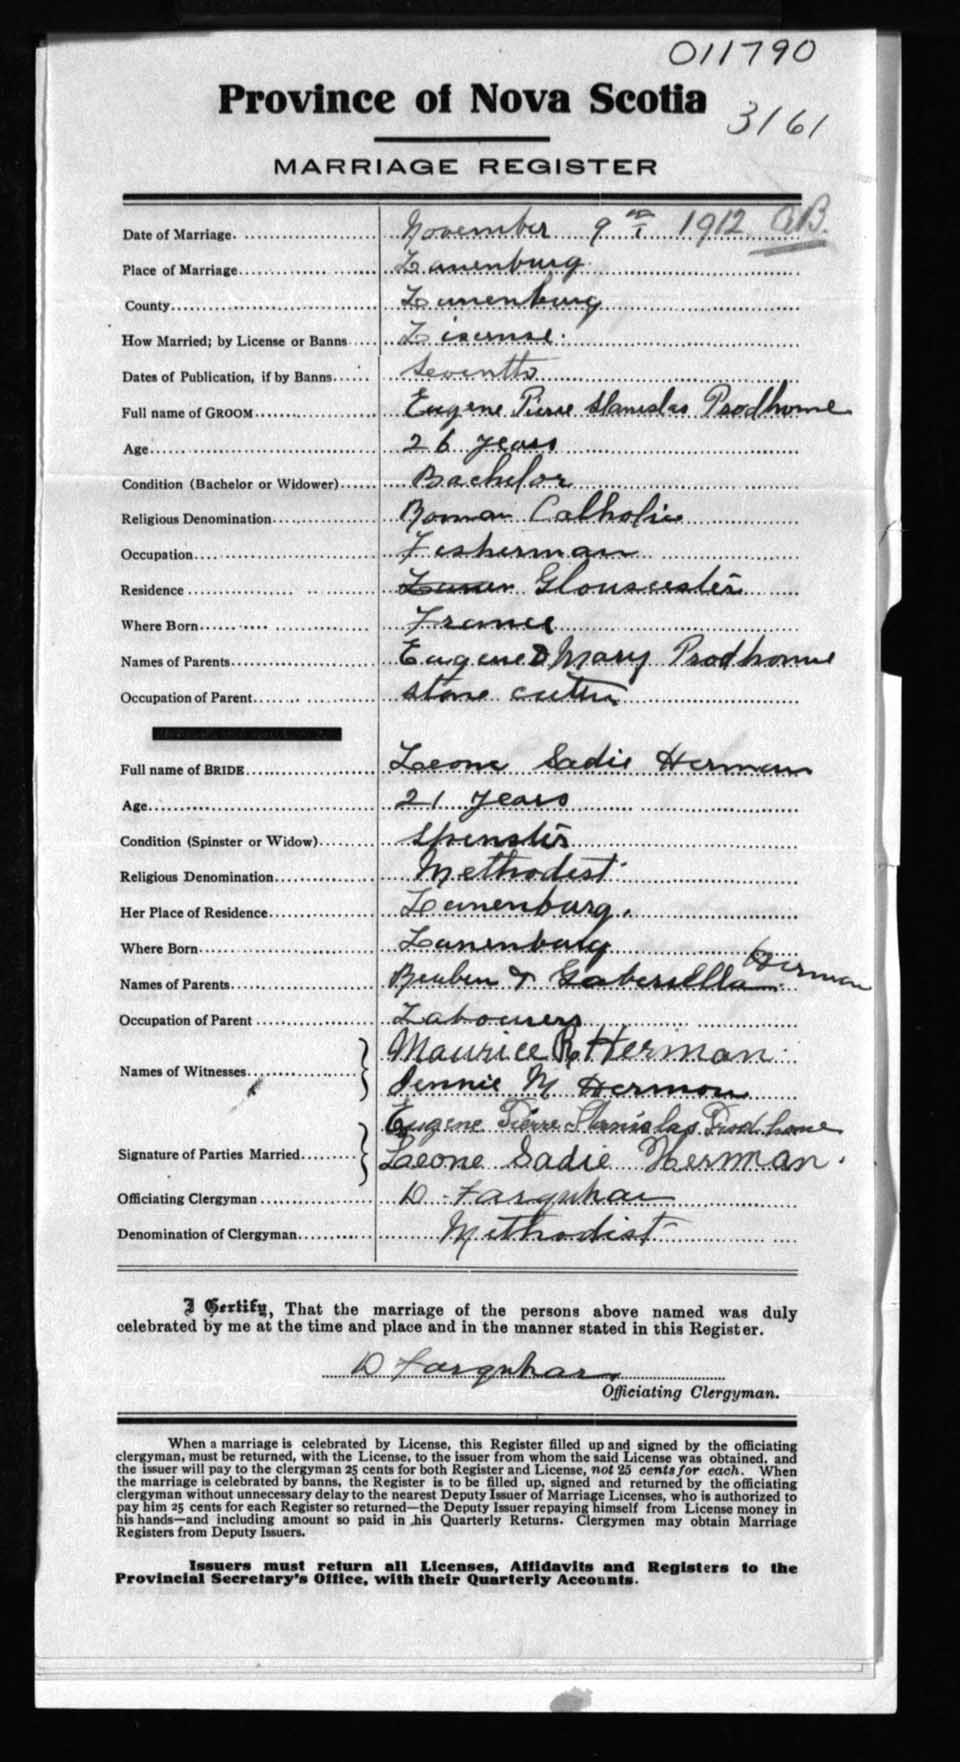 011790
Province of Nova Scotia
3161
MARRIAGE REGISTER
Date of Marriage. November 9th 1912 CB.
Place of Marriage Lunenburg
County Lunenburg
How Married; by License or Banns Lisense.
Dates of Publication, if by Banns Seventh
Full name of GROOM Eugene Pierre Stanislas Prodhome
Age 26 years
Condition (Bachelor or Widower) Bachelor
Religious Denomination Roman Catholic
Occupation Fisherman
Residence Gloucester
Where Born France
Names of Parents Eugene & Mary Prodhomme
Occupation of Parent Stone cutter
Full name of BRIDE Leone Sadie Herman
Age 21 years
Condition (Spinster or Widow) Spinster
Religious Denomination Methodist
Her Place of Residence Lunenburg.
Where Born Lunenburg
Names of Parents Reuben & Gabersella Herman
Occupation of Parent Labourers
Names of Witnesses Maurice R. Herman
Jennie M Herman
Eugene Pierre Stanislas Prodhome
Signature of Parties Married Leone Sadie Herman.
Officiating Clergyman D. Farquhar
Denomination of Clergyman Methodist
I Certify, That the marriage of the persons above named was duly
celebrated by me at the time and place and in the manner stated in this Register.
D Farquhar
Officiating Clergyman.
When a marriage is celebrated by License, this Register filled up and signed by the officiating
clergyman, must be returned, with the License, to the issuer from whom the said License was obtained, and
the issuer will pay to the clergyman 25 cents for both Register and License, not 25 cents for each. When
the marriage is celebrated by banns, the Register is to be filled up, signed and returned by the officiating
clergyman without unnecessary delay to the nearest Deputy Issuer of Marriage Licenses, who is authorized to
pay him 25 cents for each Register so returned—the Deputy Issuer repaying himself from License money in
his hands—and including amount so paid in his Quarterly Returns. Clergymen may obtain Marriage
Registers from Deputy Issuers.
Issuers must return all Licenses, Affidavits and Registers to the
Provincial Secretary's Office, with their Quarterly Accounts.